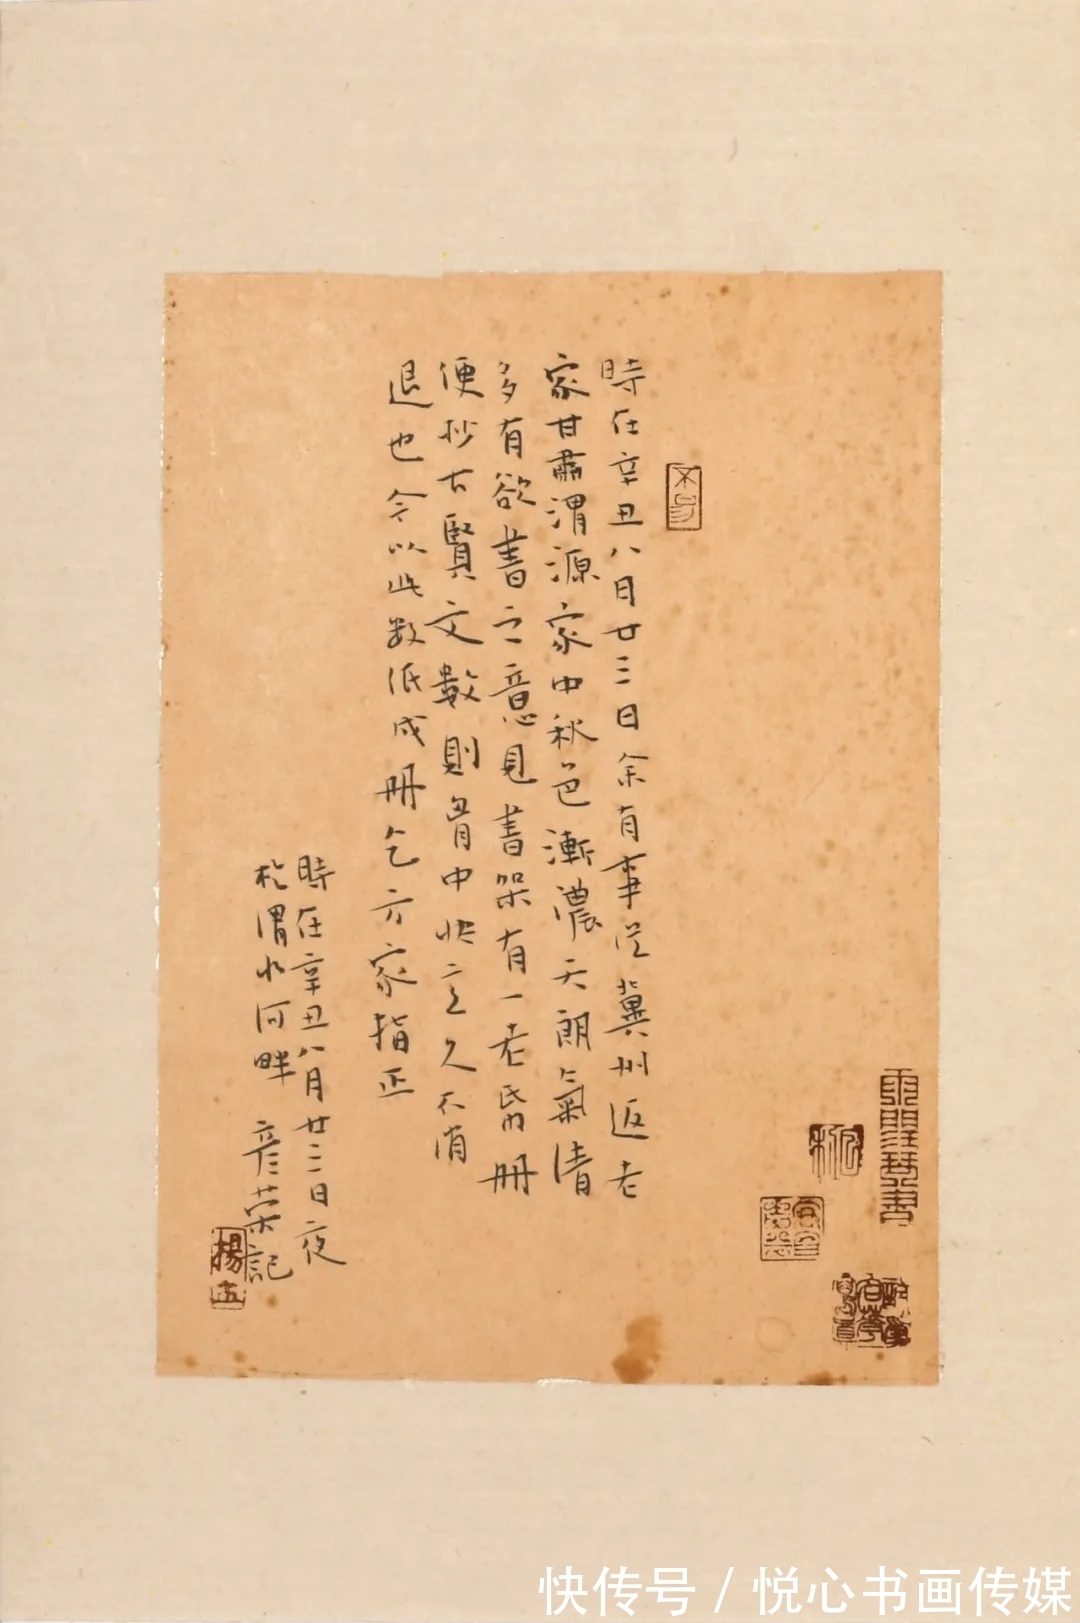 時在辛丑八月廿三日余有事從冀州返老
家甘肅渭源家中秋色漸濃天朗氣清
多有欲書之意見書架有一老舊冊
便抄古賢文數則胸中怏之久不消
退也今以此数纸成冊乞方家指正
時在辛丑八月廿三日夜
於渭水河畔 彦荣記
快传号 / 悦心书画传媒